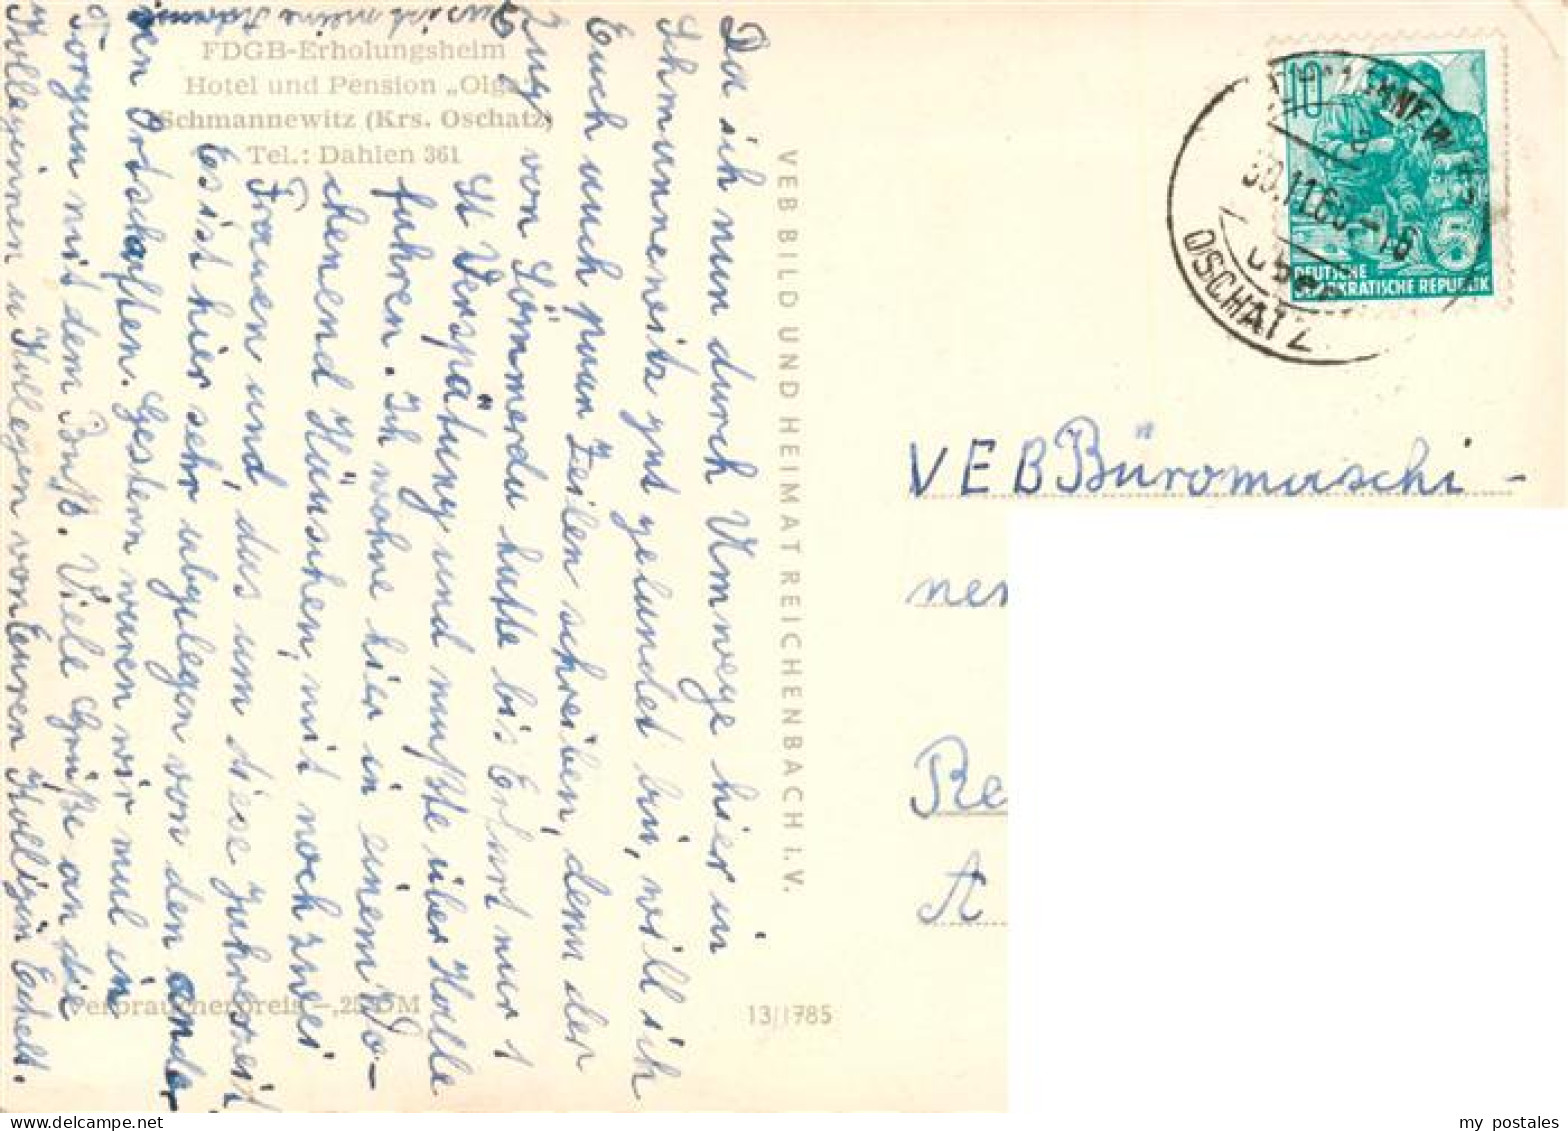 FDGB-Erholungsheim
Hotel und Pension „Olga
Schmannewitz (Krs. Oschatz)
Tel.: Dahlen 361
Da ich nun durch Umwege hier in
Schmannewitz gut gelandet bin, will ich
Euch auch paar Zeilen schreiben, denn der
Zug von Sömmerda hatte bis Erfurt nur 1
St Verspätung und mußte über Halle
fahren. Ich wohne hier in einem Wo-
chenend Häuschen, mit noch zwei
Frauen und, das um diese Jahreszeit
Es ist hier sehr abgelegen von den ander
en Ortschaften. Gestern waren wir mal in
Torgau mit dem Buß. Viele Grüße an die
Kolleginnen u Kollegen von Euren Kollegin
VEB BILD UND HEIMAT REICHENBACH I. V.
Verbraucherpreis -,25 DM
13/1785
10
5
DEUTSCHE
DEMOKRATISCHE REPUBLIK
OSCHATZ
VEB Büromaschi-
ner
Re
A
my postales
delcampe.net